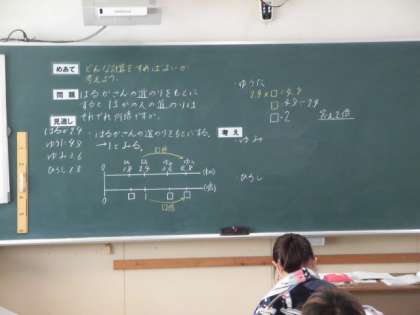 めあて どんな計算をすればよいか
考えよう。
問題 はるかさんの道のりをもとに
すると ほかの人の道のりは
それぞれ何倍ですか。
見通し
はるか2.4
ゆうた4.8
ゆみ3.6
ひろし1.8
・はるかさんの道のりをもとにする。
→1とみる。
□倍
0 1.8 2.4 3.6 4.8 (km)
0 □ 1 □ □ (倍)
□倍
考え
・ゆうた
2.4×□=4.8
□=4.8÷2.4
□=2 答え2倍
・ゆみ
ひろし